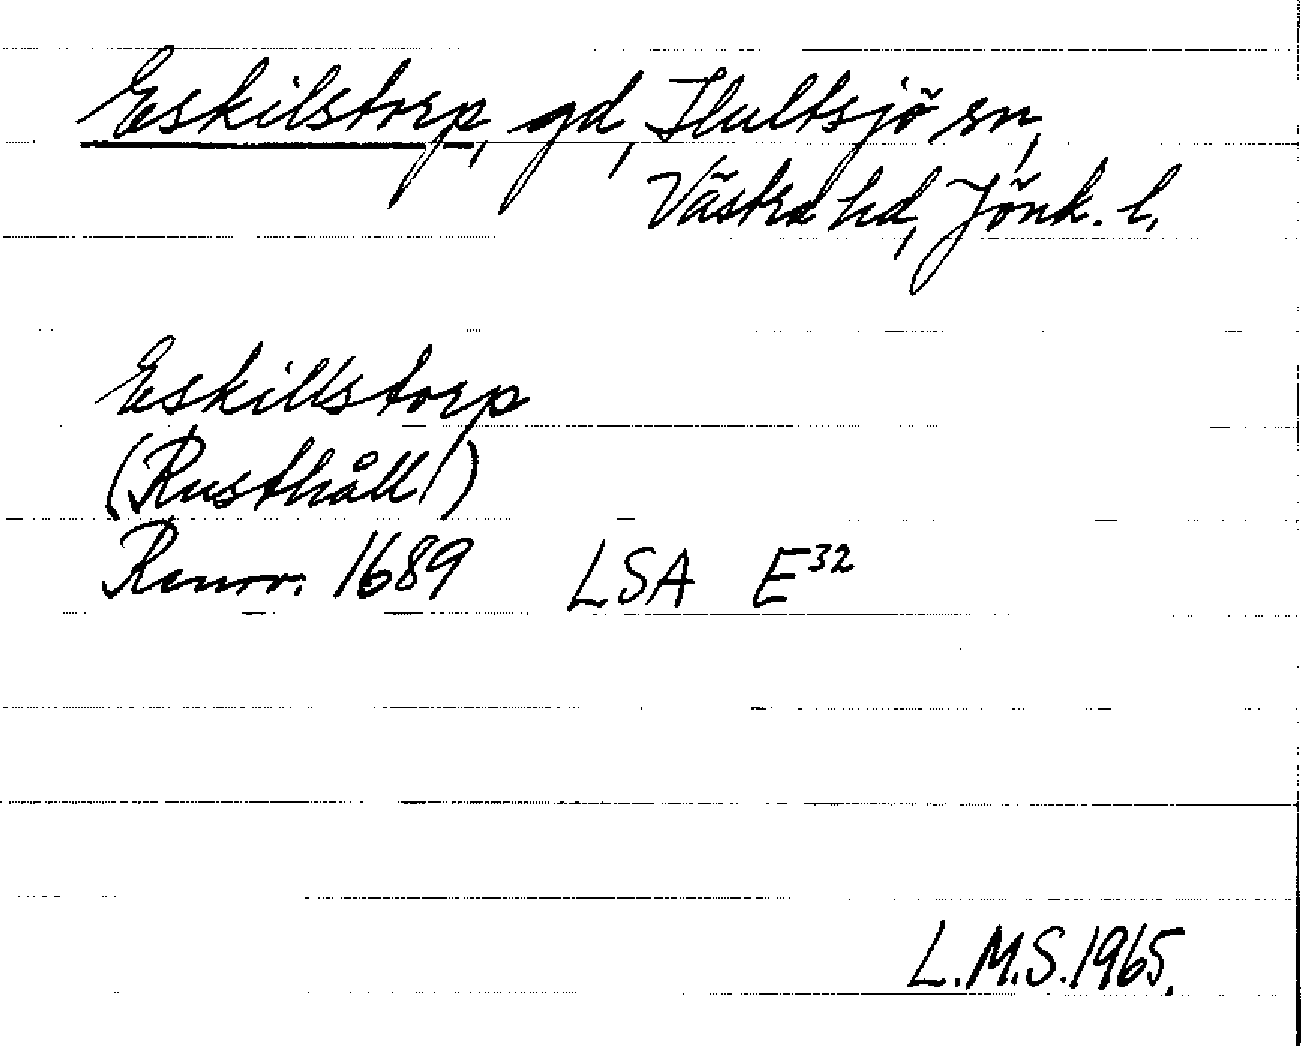 Eskilstorp, gd, Hultsjö sn,
Västra hd, Jönk. l.
Eskillstorp
(Rusthåll)
Renov. 1689 LSA E32
L.M.S. 1965.